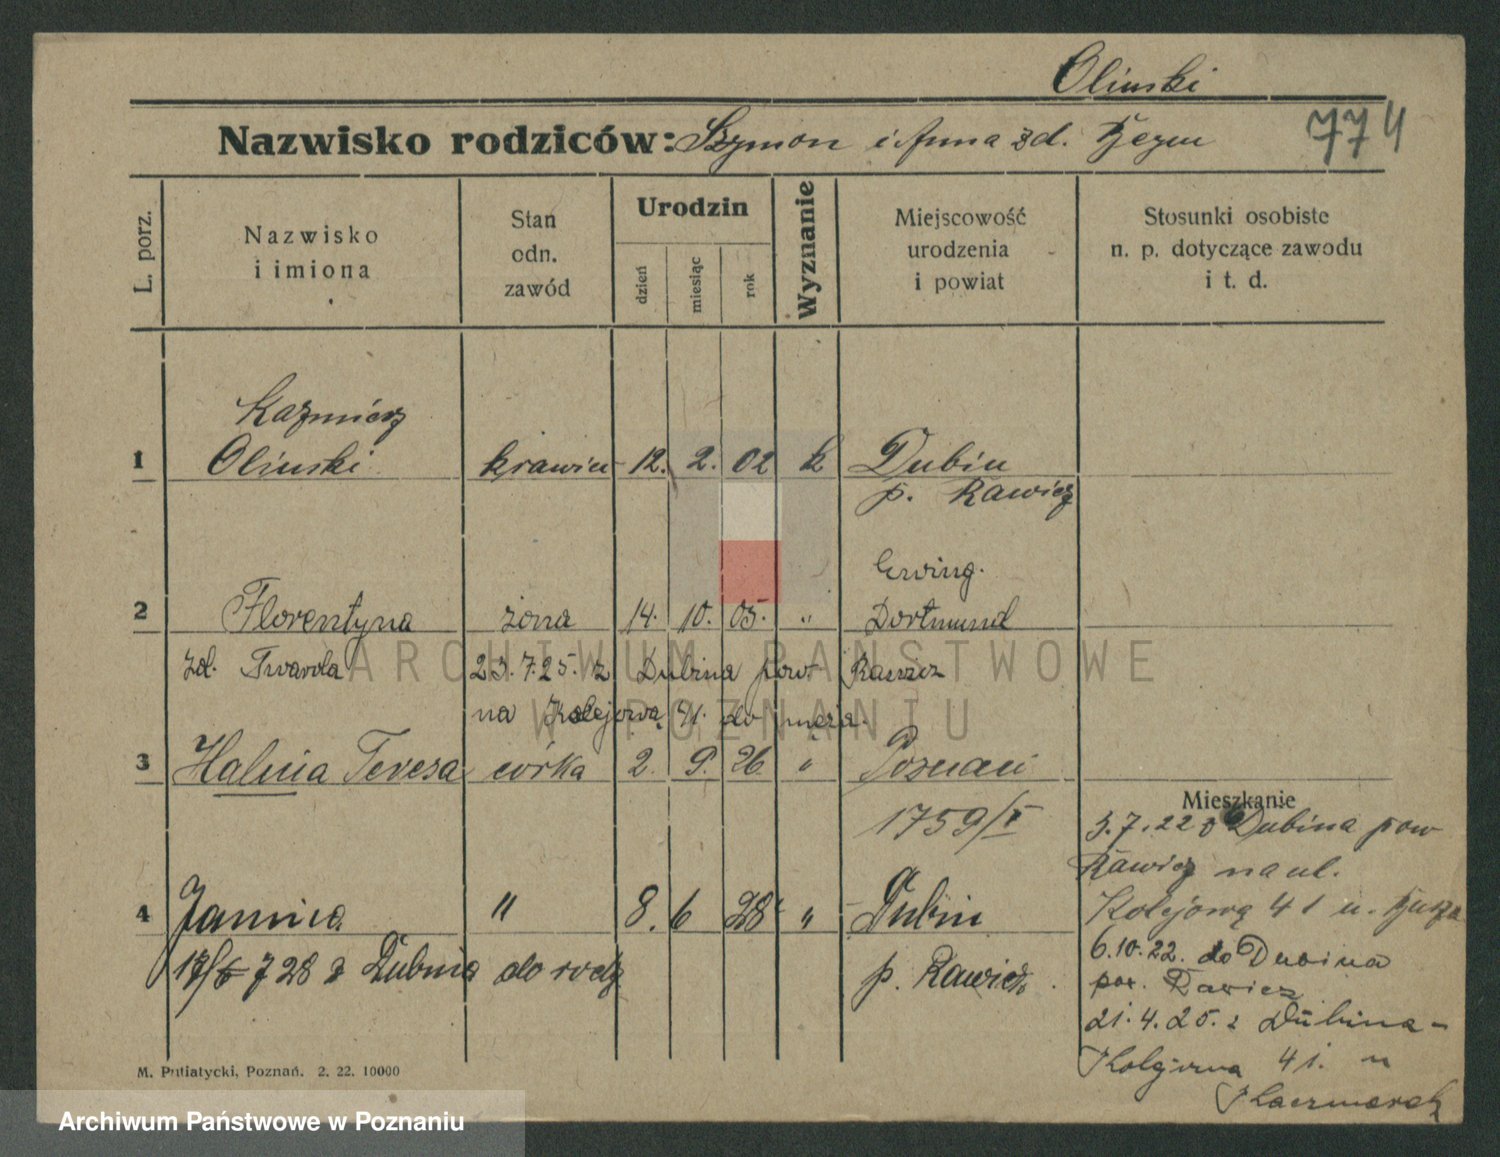 Olinski
Nazwisko rodziców: Szymon i Anna zd.
774
L. porz.
Nazwisko
i imiona
Stan
odn.
zawód
Urodzin
dzień
miesiąc
rok
Wyznanie
Miejscowość
urodzenia
i powiat
Stosunki osobiste
n. p. dotyczące zawodu
i t. d.
Kazmierz
1 Olinski krawiec 12. 2. 02 k Dubin
p. Rawicz
Erving.
2 Florentyna żona 14. 10. 05. " Dortmund
zd. Twarda 23.7.25. z Dubina pow. Rawicz
na Kolejową 41. do męża.
3 Halina Teresa córka 2. 9. 26. " Poznań
1759/I
Mieszkanie
3.7.22 z Dubina pow
Rawicz na ul.
Kolejową 41 u.
4 Janina " 8. 6 28 " Dubin
p. Rawicz.
728 z Dubina do rodz
6.10.22. do Dubina
pow. Rawicz
21.4.25. z Dubina-
Kolejowa 41. u
Kaczmarek
M. Putiatycki, Poznań. 2. 22. 10000
ARCHIWUM PAŃSTWOWE
W POZNANIU
Archiwum Państwowe w Poznaniu